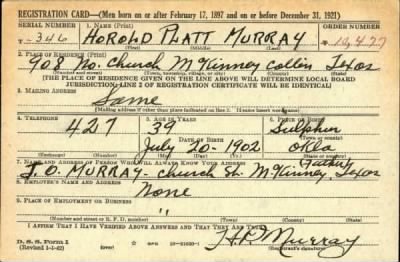 REGISTRATION CARD—(Men born on or after February 17, 1897 and on or before December 31, 1921)
SERIAL NUMBER 1. NAME (Print) ORDER NUMBER
346 HOROLD PLATT MURRAY 10,477
(First) (Middle) (Last)
2. PLACE OF RESIDENCE (Print)
908 No. Church McKinney Collin Texas
(Number and street) (Town, township, village, or city) (County) (State)
[THE PLACE OF RESIDENCE GIVEN ON THE LINE ABOVE WILL DETERMINE LOCAL BOARD
JURISDICTION; LINE 2 OF REGISTRATION CERTIFICATE WILL BE IDENTICAL]
3. MAILING ADDRESS
Same
[Mailing address if other than place indicated on line 2. If same insert word same]
4. TELEPHONE 5. AGE IN YEARS 6. PLACE OF BIRTH
427 39 Sulphur
DATE OF BIRTH (Town or county)
July 20- 1902 Okla
(Exchange) (Number) (Mo.) (Day) (Yr.) (State or country)
7. NAME AND ADDRESS OF PERSON WHO WILL ALWAYS KNOW YOUR ADDRESS (Father)
J. O. MURRAY - Church St. McKinney, Texas
8. EMPLOYER'S NAME AND ADDRESS
None
9. PLACE OF EMPLOYMENT OR BUSINESS
"
(Number and street or R. F. D. number) (Town) (County) (State)
I AFFIRM THAT I HAVE VERIFIED ABOVE ANSWERS AND THAT THEY ARE TRUE.
D. S. S. Form 1
(Revised 1-1-42) (over) H.P. Murray
(Registrant's signature)